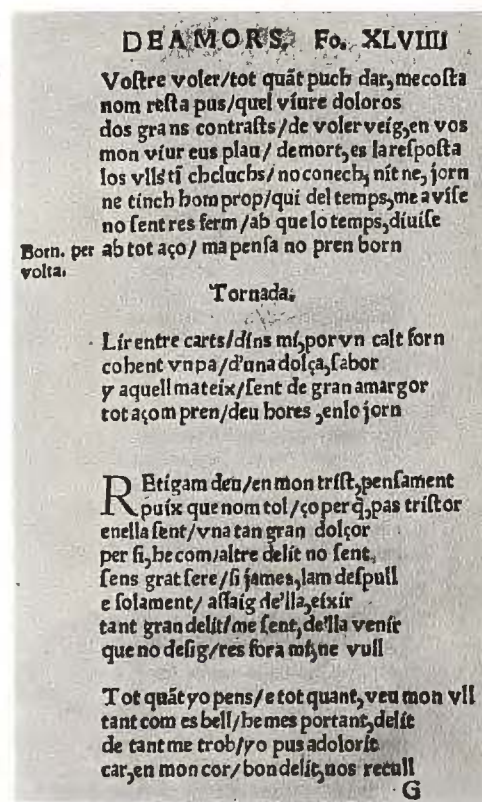 DE AMORS. Fo. XLVIIII
Voſtre voler/tot quãt puch dar, me coſta
nom reſta pus/quel viure doloros
dos grans contraſts/de voler veig, en vos
mon viur eus plau/ de mort, es la reſpoſta
los vlls ti chcluchs/ no conech, nit ne, jorn
ne tinch hom prop/qui del temps, me aviſe
no ſent res ferm/ab que lo temps, diuiſe
Born. per volta.
ab tot aço/ ma penſa no pren born
Tornada.
Lir entre carts/dins mi, por vn calt forn
cohent vn pa/d'una dolça, ſabor
y aquell mateix/ſent de gran amargor
tot açom pren/deu hores, enlo jorn
REtigam deu/en mon triſt, penſament
puix que nom tol/ço per q̃, pas triſtor
enella ſent/vna tan gran dolçor
per ſi, be com/altre delit no ſent,
ſens grat ſere/ſi james, lam deſpull
e ſolament/ aſſaig de'lla, eixir
tant gran delit/me ſent, de'lla venir
que no deſig/res fora mi, ne vull
Tot quãt yo pens/e tot quant, veu mon vll
tant com es bell/he mes portant, delit
de tant me trob/yo pus adolorit
car, en mon cor/ bon delit, nos recull
G